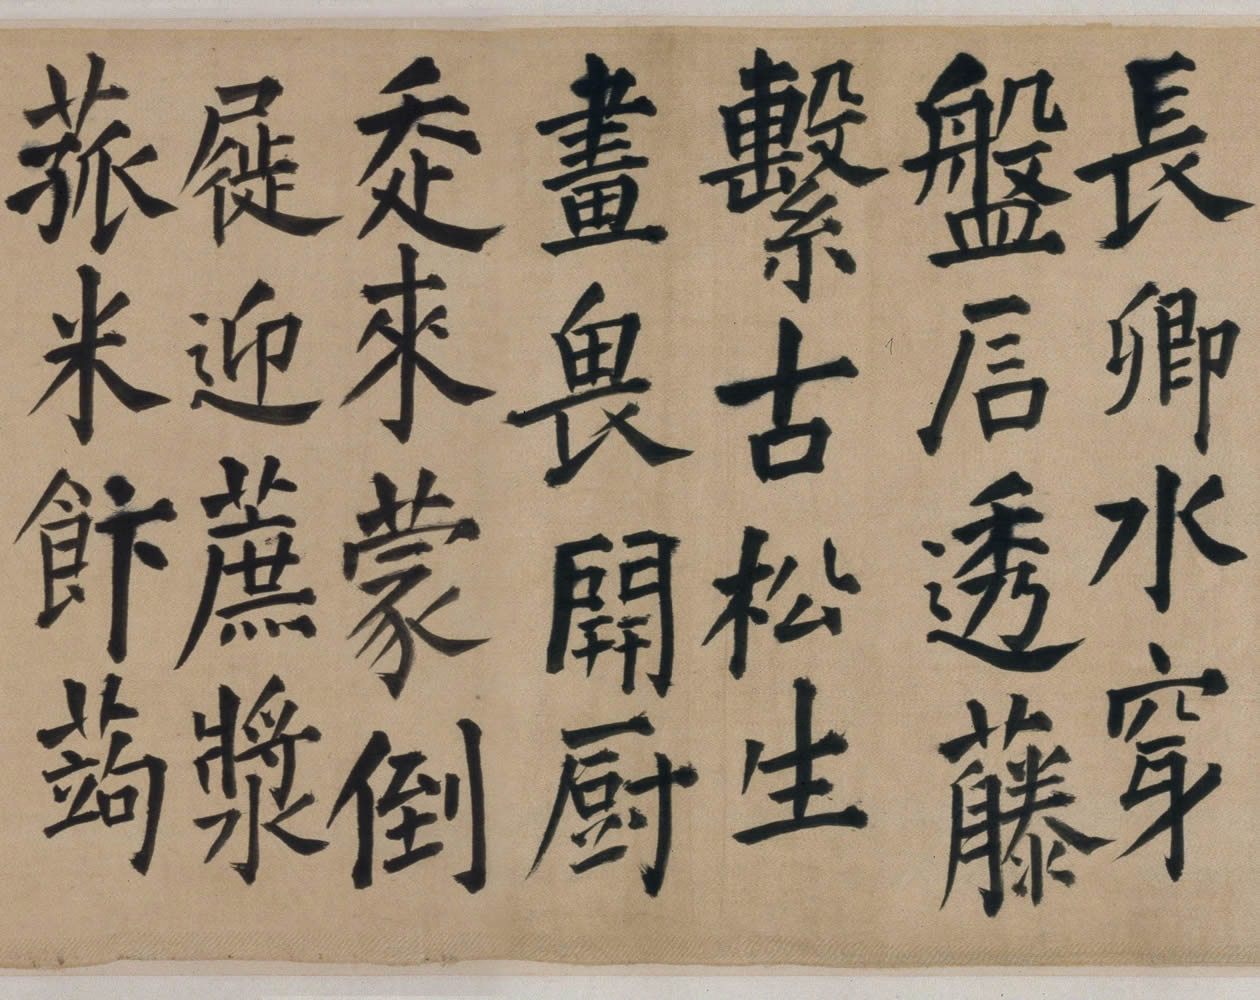 長卿水穿
盤启透藤
繫古松生
畫畏開厨
來蒙倒
屣迎蔗漿
菰米飰蒟